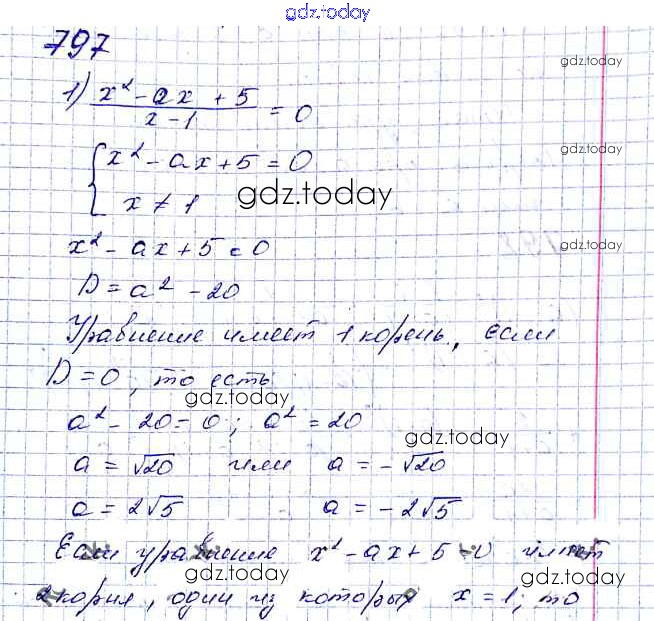 gdz.today
797
gdz.today
1) (x² - ax + 5)/(x - 1) = 0
{ x² - ax + 5 = 0
gdz.today
x ≠ 1
gdz.today
x² - ax + 5 = 0
gdz.today
D = a² - 20
Уравнение имеет 1 корень, если
D = 0, то есть
gdz.today
a² - 20 = 0; a² = 20
gdz.today
a = √20 или a = -√20
a = 2√5 a = -2√5
gdz.today
Если уравнение x² - ax + 5 = 0 имеет
gdz.today
2 корня, один из которых x = 1, то